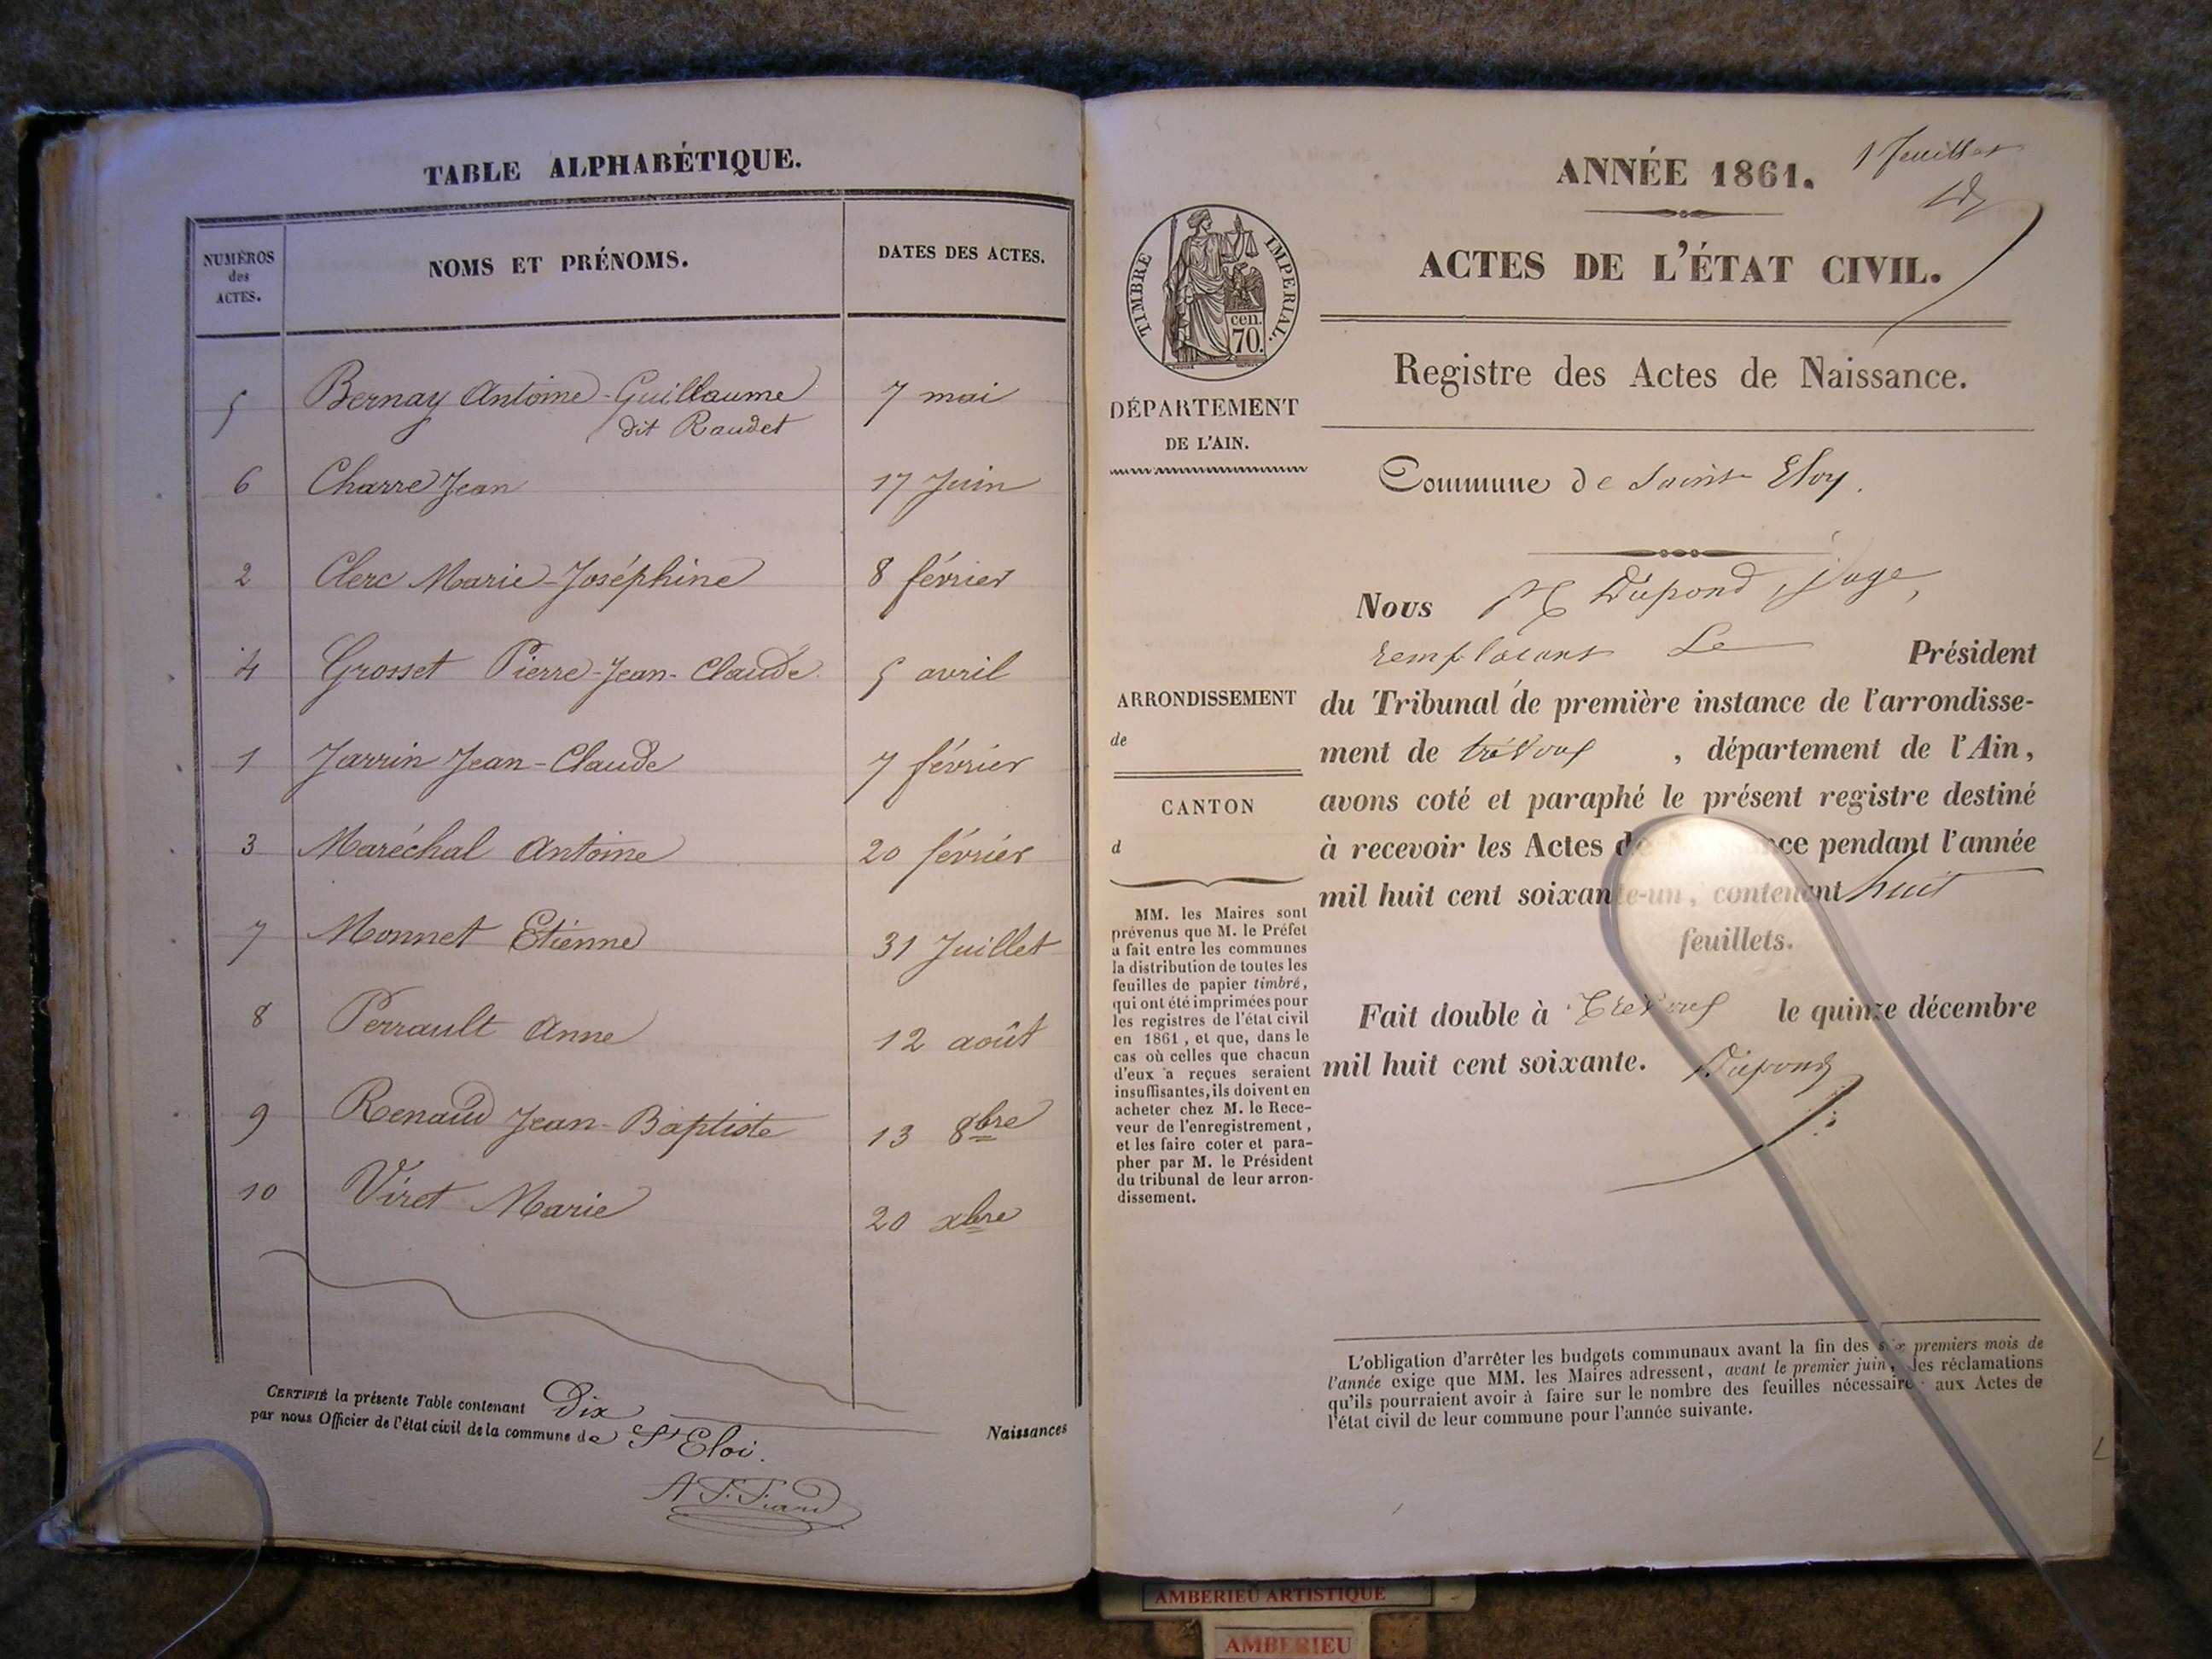 TABLE ALPHABÉTIQUE.
NUMÉROS des ACTES. NOMS ET PRÉNOMS. DATES DES ACTES.
5 Bernay Antoine-Guillaume 7 mai
dit Raudet
6 Charre Jean 17 Juin
2 Clerc Marie-Joséphine 8 février
4 Grosset Pierre-Jean-Claude 5 avril
1 Jarrin Jean-Claude 7 février
3 Maréchal Antoine 20 février
7 Monnet Etienne 31 Juillet
8 Perrault Anne 12 août
9 Renaud Jean-Baptiste 13 8bre
10 Viret Marie 20 xbre
CERTIFIÉ la présente Table contenant Dix Naissances
par nous Officier de l'état civil de la commune de St Eloi.
1 feuillet
ANNÉE 1861.
ACTES DE L'ÉTAT CIVIL.
TIMBRE IMPERIAL.
cen.
70.
DÉPARTEMENT
DE L'AIN.
Registre des Actes de Naissance.
Commune de Saint Eloy.
Nous Dupond, Juge,
remplaçant Le Président
du Tribunal de première instance de l'arrondisse-
ment de trévoux, département de l'Ain,
avons coté et paraphé le présent registre destiné
à recevoir les Actes ce pendant l'année
mil huit cent soixante-un, contenant huit
feuillets.
Fait double à Trévoux le quinze décembre
mil huit cent soixante. Dupond
ARRONDISSEMENT
de
CANTON
d
MM. les Maires sont
prévenus que M. le Préfet
a fait entre les communes
la distribution de toutes les
feuilles de papier timbré,
qui ont été imprimées pour
les registres de l'état civil
en 1861, et que, dans le
cas où celles que chacun
d'eux a reçues seraient
insuffisantes, ils doivent en
acheter chez M. le Rece-
veur de l'enregistrement,
et les faire coter et para-
pher par M. le Président
du tribunal de leur arron-
dissement.
L'obligation d'arrêter les budgets communaux avant la fin des six premiers mois de
l'année exige que MM. les Maires adressent, avant le premier juin, les réclamations
qu'ils pourraient avoir à faire sur le nombre des feuilles nécessaire aux Actes de
l'état civil de leur commune pour l'année suivante.
AMBERIEU ARTISTIQUE
AMBERIEU